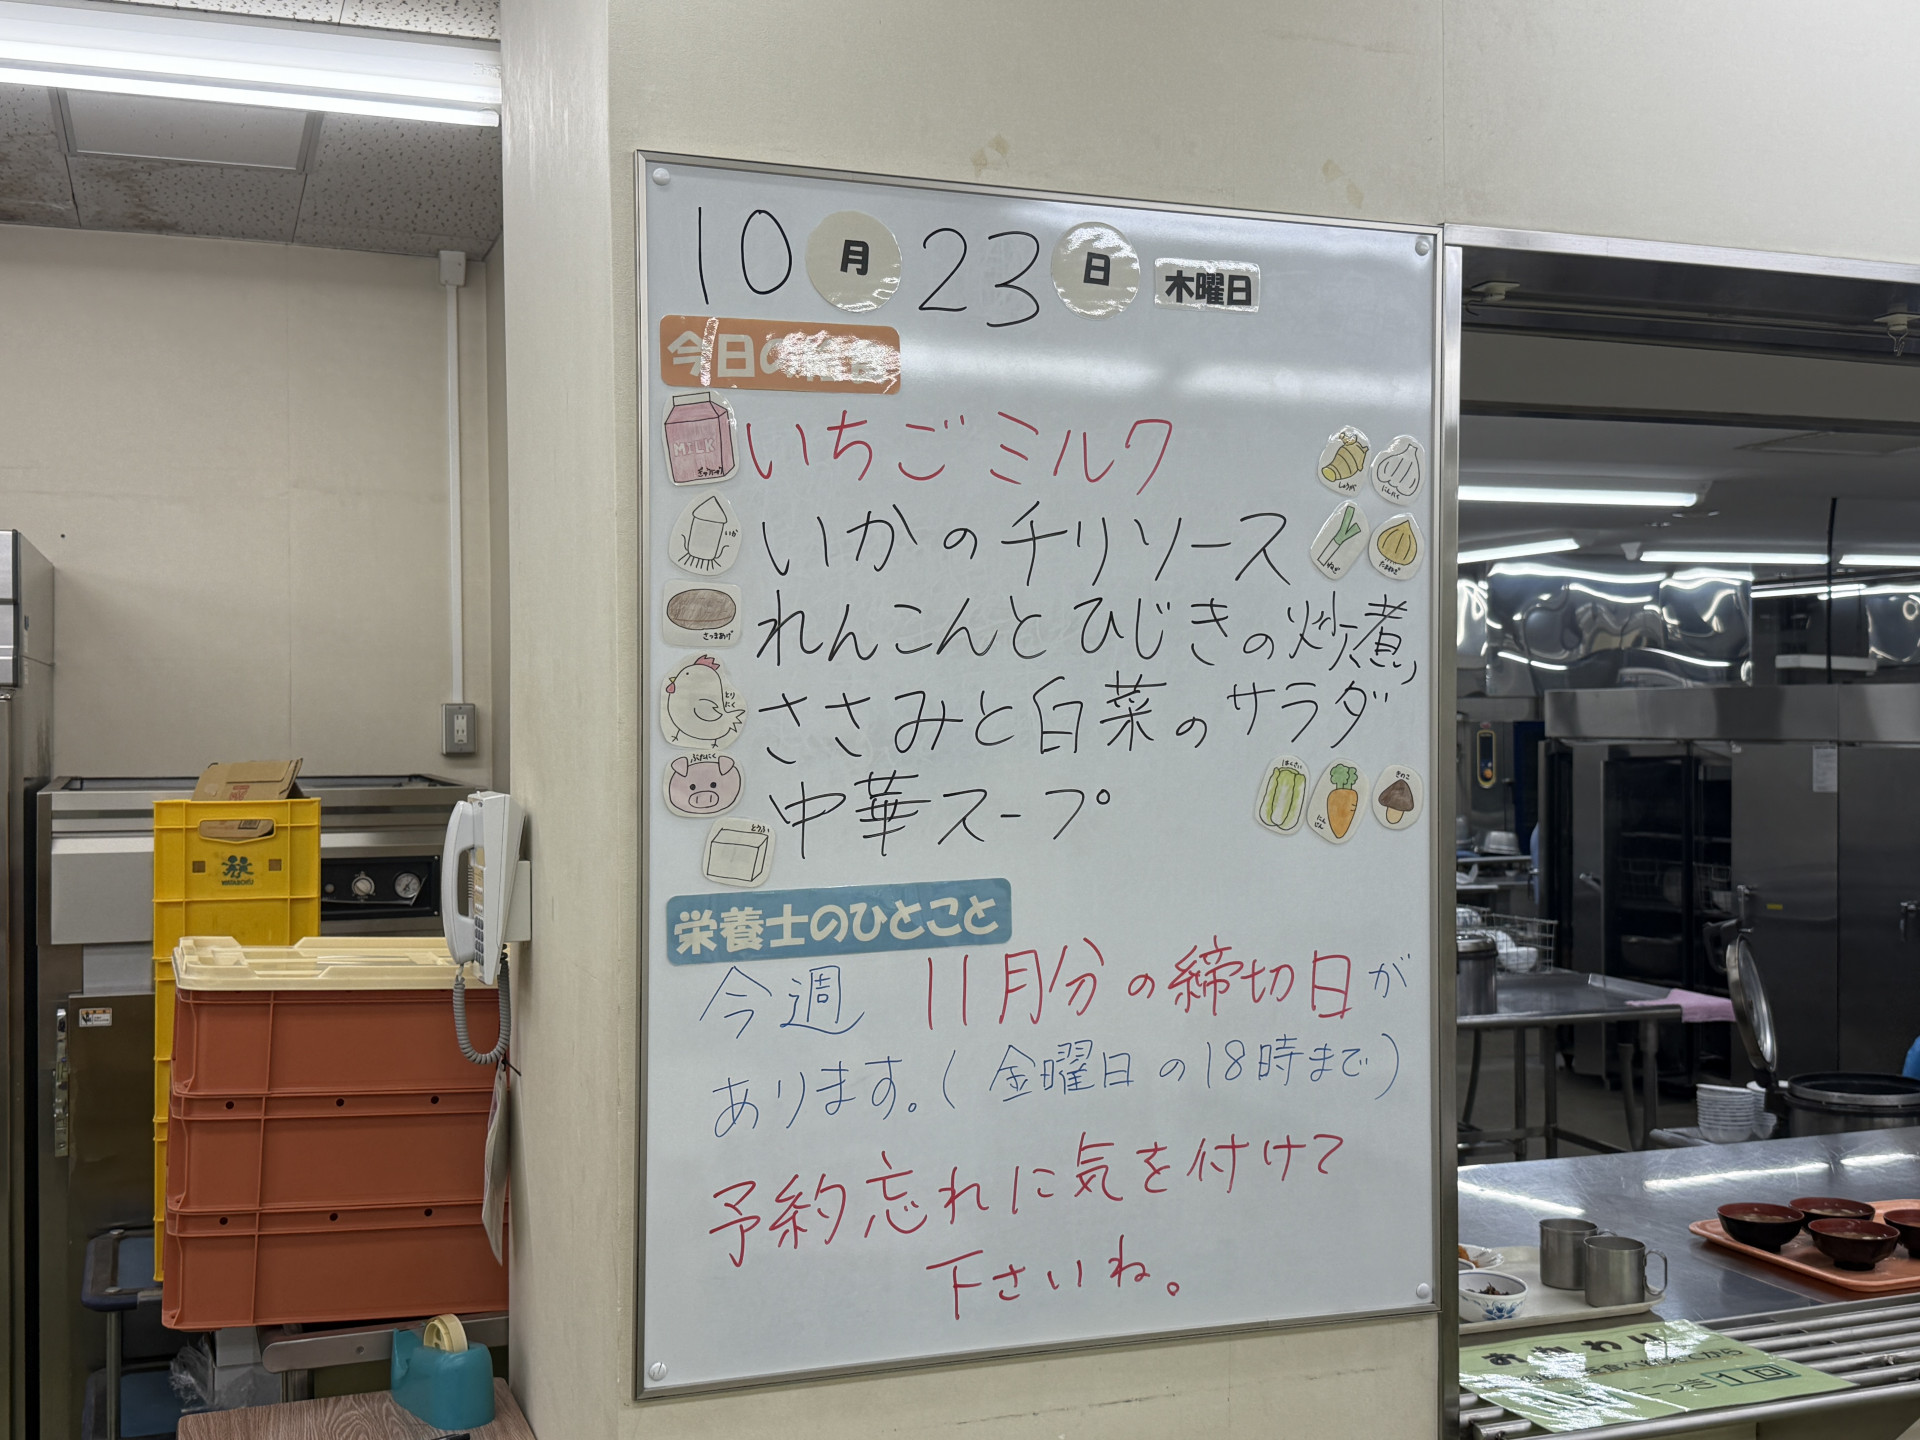 10月23日 木曜日
今日の
MILK
いちごミルク
しょうが
にんにく
いか
いかのチリソース
ねぎ
たまねぎ
さつまあげ
れんこんとひじきの炒煮
とりにく
ささみと白菜のサラダ
ぶたにく
中華スープ
はくさい
にんじん
きのこ
とうふ
栄養士のひとこと
今週 11月分の締切日が
あります。(金曜日の18時まで)
予約忘れに気を付けて
下さいね。
おかわり
1回